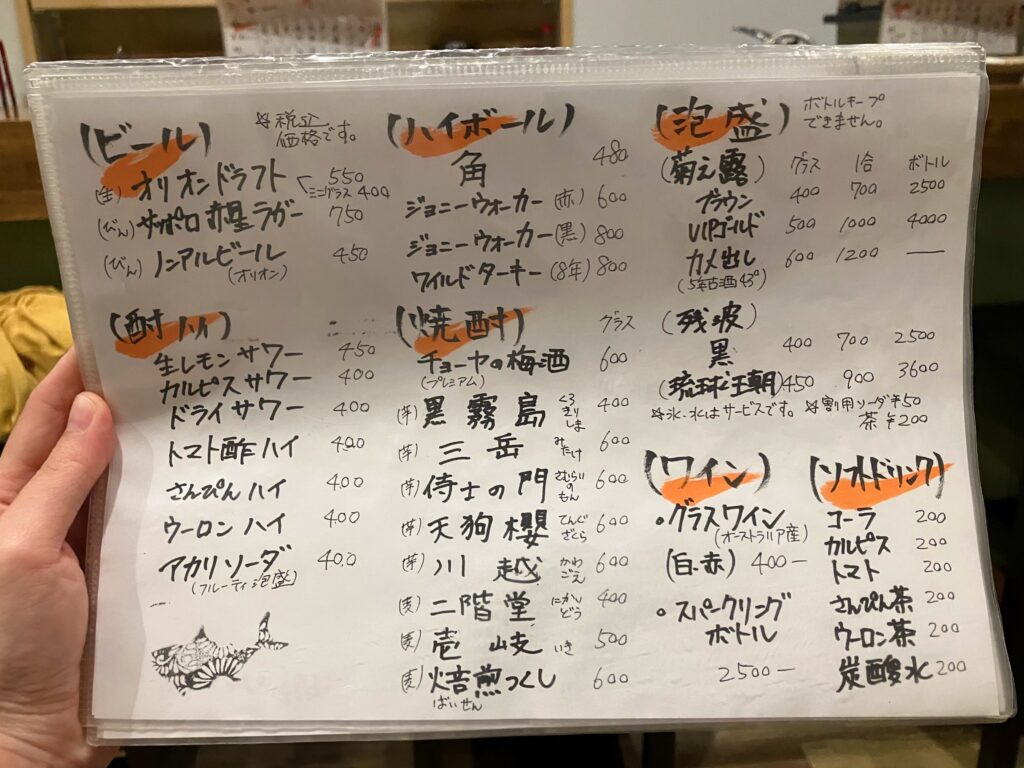 (ビール)
☆税込
価格です。
(生) オリオンドラフト 550
ミニグラス 400
(びん) サッポロ赤星ラガー 750
(びん) ノンアルビール 450
(オリオン)
(酎ハイ)
生レモンサワー 450
カルピスサワー 400
ドライサワー 400
トマト酢ハイ 400
さんぴんハイ 400
ウーロンハイ 400
アカリソーダ 400
(フルーティ泡盛)
(ハイボール)
角 480
ジョニーウォーカー (赤) 600
ジョニーウォーカー (黒) 800
ワイルドターキー (8年) 800
(焼酎) グラス
チョーヤの梅酒 600
(プレミアム)
(芋) 黒霧島 くろきりしま 400
(芋) 三岳 みたけ 600
(芋) 侍士の門 さむらいのもん 600
(芋) 天狗櫻 てんぐざくら 600
(芋) 川越 かわごえ 600
(麦) 二階堂 にかいどう 400
(麦) 壱岐 いき 500
(麦) 焙煎つくし 600
ばいせん
(泡盛) ボトルキープ
できません。
(菊之露) グラス 1合 ボトル
ブラウン 400 700 2500
VIPゴールド 500 1000 4000
カメ出し 600 1200 —
(5年古酒43°)
(残波)
黒 400 700 2500
(琉球王朝) 450 900 3600
☆氷・水はサービスです。 ☆割り用ソーダ¥50
茶¥200
(ワイン)
・グラスワイン
(オーストラリア産)
(白・赤) 400—
・スパークリング
ボトル
2500—
(ソフトドリンク)
コーラ 200
カルピス 200
トマト 200
さんぴん茶 200
ウーロン茶 200
炭酸水 200